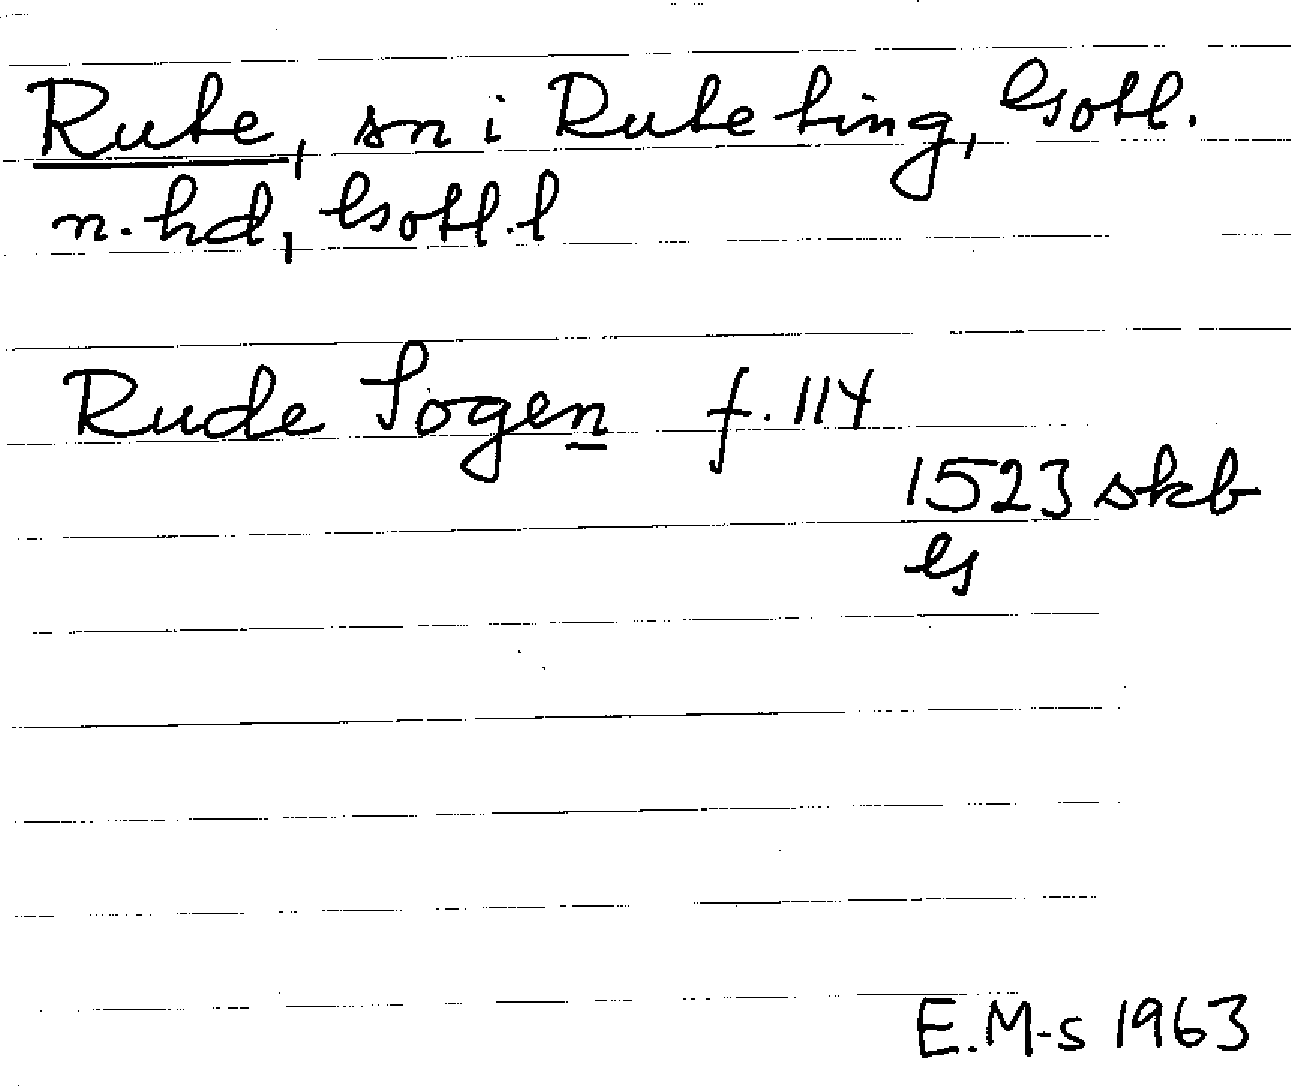 Rute, sn i Rute ting, Gotl.
n. hd, Gotl. l
Rude Sogen f. 114
1523 skb
G
E.M-s 1963